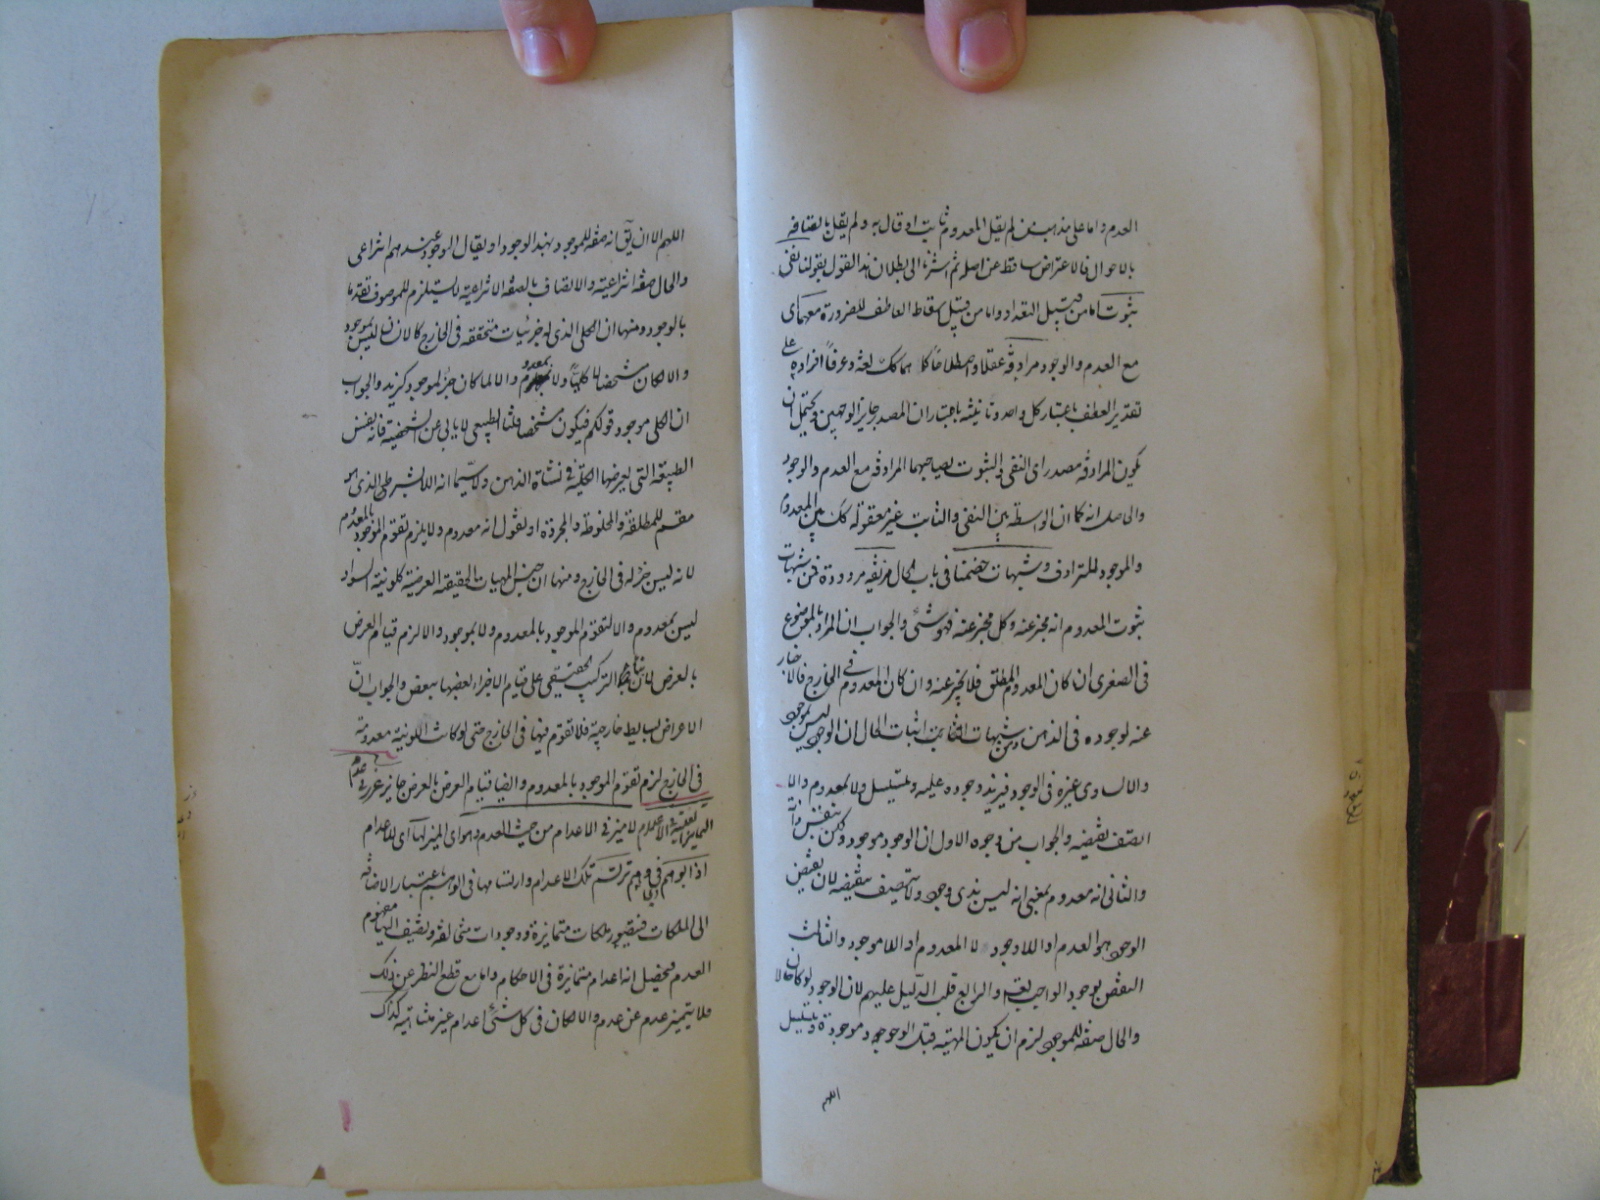 العدم واما على مذهب من لم يقل المعدوم ثابت او قال به ولم يقل باتصافه
بالاحوال فالاعتراض ساقط عن اصله ثم اشرنا الى بطلان هذا القول بقولنا نفى
ثبوت اما من قبيل التعداد واما من قبيل اسقاط العاطف للضرورة معهما اى
مع العدم والوجود مرادفة عقلا واصطلاحا كما هما كك لغة وعرفا افراده على
تقدير العطف باعتبار كل واحد وتانيثه باعتبار ان المصدر جايز الوجهين ويحتمل ان
يكون المرادفة مصدرا اى النفى والثبوت يصاحبهما المرادفة مع العدم والوجود
والحاصل انه كما ان الواسطة بين النفى والثابت غير معقولة كك بين المعدوم
والموجود للترادف وشبهات خصمنا فى باب الحال مزيفة مردودة فمن شبهات
ثبوت المعدوم انه مخبر عنه وكل مخبر عنه فهو شئ والجواب ان المراد بالموضوع
فى الصغرى ان كان المعدوم المطلق فلا يخبر عنه وان كان المعدوم فى الخارج فالاخبار
عنه لوجوده فى الذهن ومن شبهات اثبات الحال ان الوجود ليس بموجود
والا لساوى غيره فى الوجود فيزيد وجوده عليه ويتسلسل ولا بمعدوم والا
اتصف بنقيضه والجواب من وجوه الاول ان الوجود موجود ولكن بنفس ذاته
والثانى انه معدوم بمعنى انه ليس بذى وجود ولا يتصف بنقيضه لان نقيض
الوجود هو العدم او اللاوجود لا المعدوم او اللاموجود والثالث
النقض بوجود الواجب تعالى والرابع قلب الدليل عليهم لان الوجود لو كان حالا
والحال صفة للموجود لزم ان يكون المهية قبل الوجود موجودة ويتسلسل
اللهم
اللهم الا ان يق انه صفة للموجود بهذا الوجود او يقال الوجود عندهم انتزاعى
والحال صفة انتزاعية والاتصاف بالصفة الانتزاعية لا يستلزم للموصوف تقدما
بالوجود ومنها ان الكلى الذى له جزئيات متحققة فى الخارج كالانسان ليس بموجود
والا لكان مشخصا لا كليا ولا بمعدوم والا لما كان جزء لموجود كزيد والجواب
ان الكلى موجود قولكم فيكون مشخصا قلنا الطبيعى لا يابى عن الشخصية فانه نفس
الطبيعة التى يعرضها الكلية فى نشاة الذهن ولا سيما انه اللابشرط الذى هو
مقسم للمطلقة والمخلوطة والمجردة او نقول انه معدوم ولا يلزم تقوم الموجود بالمعدوم
لانه ليس جزء له فى الخارج ومنها ان جنس المهيات الحقيقية العرضية كلونية السواد
ليس بمعدوم والا لتقوم الموجود بالمعدوم ولا بموجود والا لزم قيام العرض
بالعرض لان التركيب الحقيقى على قيام الاجزاء بعضها ببعض والجواب ان
الاعراض بسايط خارجية فلا تقوم فيها فى الخارج حتى لو كانت اللونية معدومة
فى الخارج لزم تقوم الموجود بالمعدوم وايضا قيام العرض بالعرض جايز غرر فى عدم
التمايز والعلية فى الاعدام لا ميز فى الاعدام من حيث العدم وهو اى الميز لها اى للاعدام
اذا بوهم فى وهم ترتسم تلك الاعدام وارتسامها فى الوهم باعتبار الاضافة
الى الملكات فيتصور ملكات متمايزة ووجودات متخالفة ويضيف اليها مفهوم
العدم فيحصل انه اعدام متمايزة فى الاحكام واما مع قطع النظر عن ذلك
فلا يتميز عدم عن عدم والا لكان فى كل شئ اعدام غير متناهية كذاك